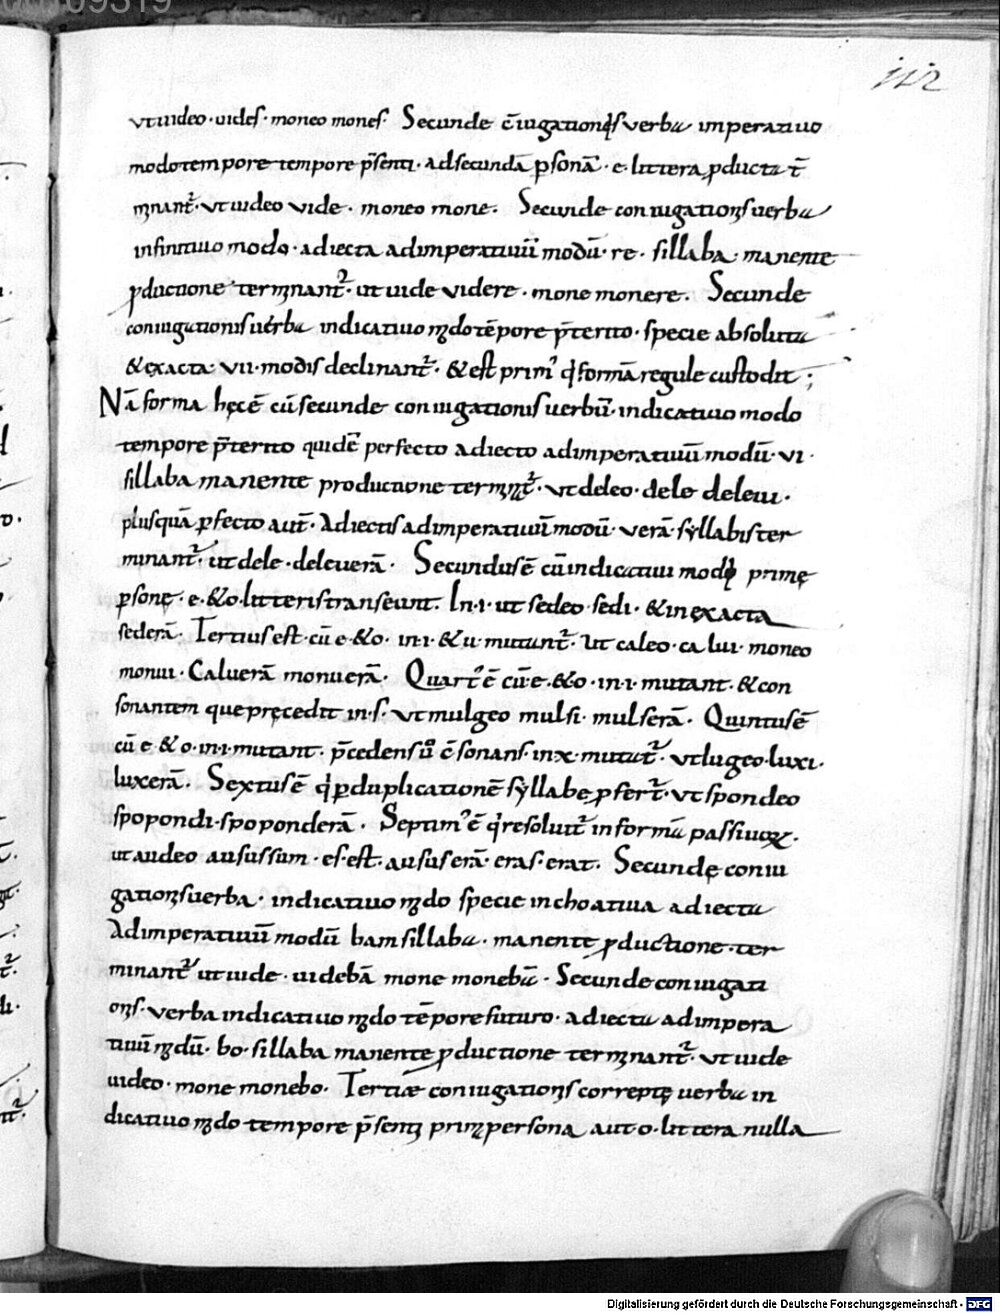 112
ut uideo · uides · moneo mones · Secunde c̄iugationis uerba imperatiuo
modo tempore tempore p̄senti · ad secundā ꝑsonā · e · littera ꝓducta t̄
minant᷑ · ut uideo vide · moneo mone · Secunde coniugationis uerba
infinitiuo modo · adiecta ad imperatiuū modū · re · sillaba · manente
ꝓductione terminant᷑ · ut uide videre · mone monere · Secunde
coniugationis uerba indicatiuo modo tēpore p̄terito · specie absoluta
& exacta · vii · modis declinant᷑ · & est prim᷒ q' formā regule custodit ;
Nā forma hęc ē cū secunde coniugationis uerbū · indicatiuo modo
tempore p̄terito quidē perfecto adiecto ad imperatiuū modū · vi ·
sillaba manente productione termin᷑ · ut deleo · dele deleui ·
plusquā ꝑfecto aut̄ · Adiectis ad imperatiuū modū · verā · syllabis ter
minant᷑ · ut dele · deleuerā · Secundus ē cū indicatiui modi primę
ꝑsonę · e · & o · litteris transeunt · In · i · ut sedeo · sedi · & in exacta
sederā · Tertius est · cū e · & o · in · i · & u · mutant᷑ · Ut caleo · calui · moneo
monui · Caluerā monuerā · Quart᷒ ē cū · e · & o · in · i · mutant · & con
sonantem que pręcedit in · s · ut mulgeo mulsi · mulserā · Quintus ē
cū e · & o · in · i · mutant · p̄cedens ū c̄sonans · in x · mutat᷑ · ut lugeo · luxi ·
luxerā · Sextus ē q' ꝑ duplicationē syllabe ꝓfert᷑ · ut spondeo
spopondi · spoponderā · Septim᷒ ē q' resoluit᷑ in formā passiuoꝝ ·
ut audeo ausus sum · es · est · ausus erā · eras · erat · Secundę coniu
gationis uerba · indicatiuo modo specie inchoatiua adiecta
Ad imperatiuū modū bam sillaba · manente ꝓductione · ter
minant᷑ ut uide · uidebā mone monebā · Secunde coniugati
onis · verba indicatiuo modo tēpore futuro · adiecta ad impera
tiuū modū · bo · sillaba manente ꝓductione terminant᷑ · ut uide
uideo · mone monebo · Tertiæ coniugationis correptę uerba in
dicatiuo modo tempore p̄senti prima persona aut o · littera nulla
Digitalisierung gefördert durch die Deutsche Forschungsgemeinschaft - DFG